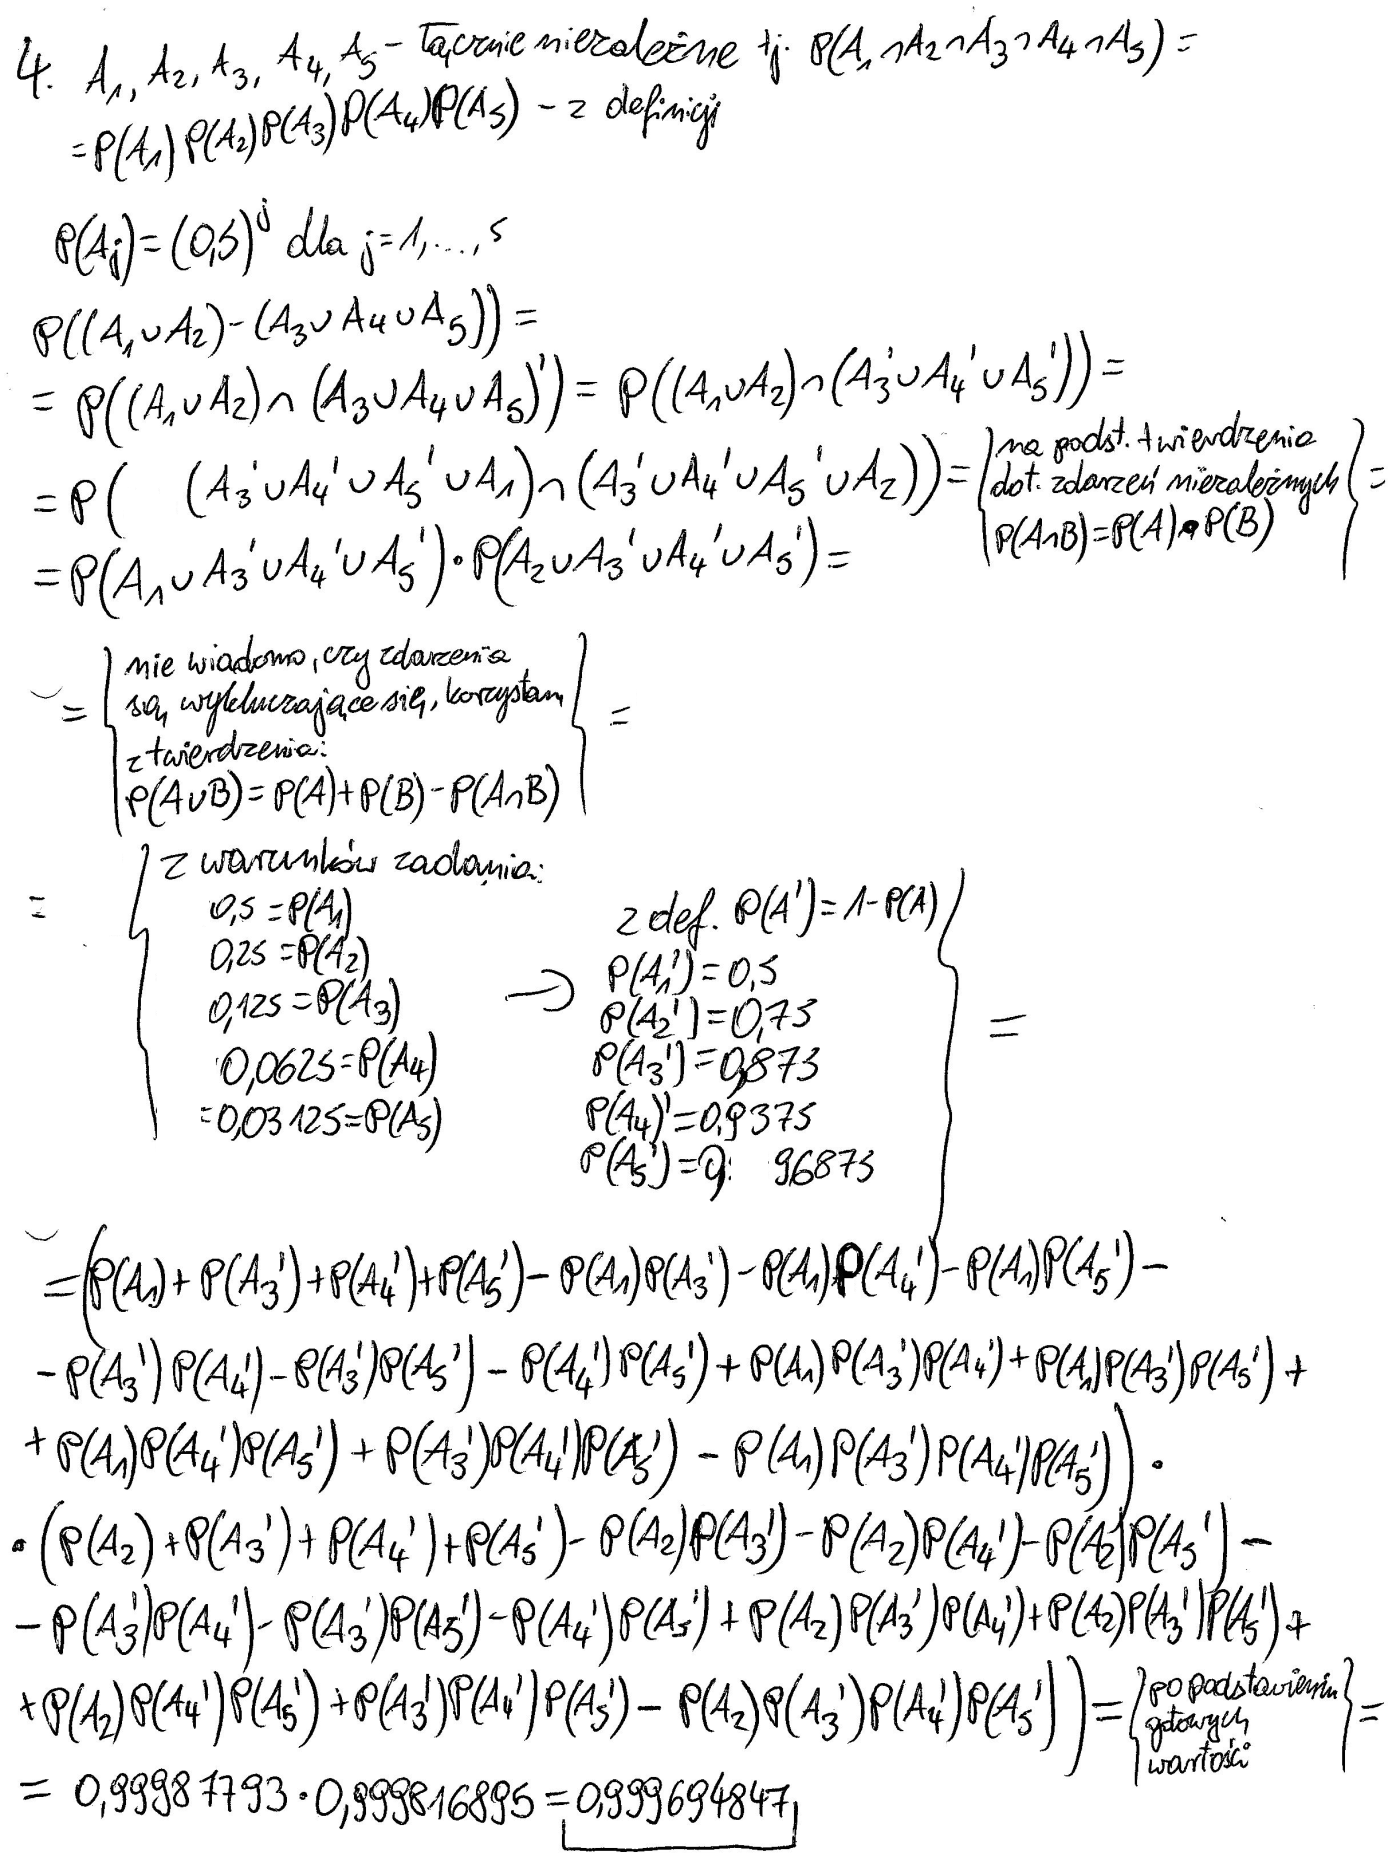 4. A₁, A₂, A₃, A₄, A₅ - łącznie niezależne tj. P(A₁∩A₂∩A₃∩A₄∩A₅) =
= P(A₁)P(A₂)P(A₃)P(A₄)P(A₅) - z definicji
P(Aⱼ) = (0,5)ʲ dla j=1,...,5
P((A₁∪A₂)-(A₃∪A₄∪A₅)) =
= P((A₁∪A₂)∩(A₃∪A₄∪A₅)') = P((A₁∪A₂)∩(A₃'∪A₄'∪A₅')) =
= P( (A₃'∪A₄'∪A₅'∪A₁)∩(A₃'∪A₄'∪A₅'∪A₂)) = { na podst. twierdzenia
dot. zdarzeń niezależnych
P(A∩B)=P(A)•P(B) } =
= P(A₁∪A₃'∪A₄'∪A₅')•P(A₂∪A₃'∪A₄'∪A₅') =
= { nie wiadomo, czy zdarzenia
są wykluczające się, korzystam
z twierdzenia:
P(A∪B) = P(A)+P(B)-P(A∩B) } =
= { z warunków zadania:
0,5 = P(A₁)
0,25 = P(A₂)
0,125 = P(A₃)
0,0625 = P(A₄)
= 0,03125 = P(A₅)
→ z def. P(A') = 1-P(A)
P(A₁') = 0,5
P(A₂') = 0,75
P(A₃') = 0,875
P(A₄)' = 0,9375
P(A₅') = 0, 96875 } =
= (P(A₁) + P(A₃') + P(A₄') + P(A₅') - P(A₁)P(A₃') - P(A₁)P(A₄') - P(A₁)P(A₅') -
- P(A₃')P(A₄') - P(A₃')P(A₅') - P(A₄')P(A₅') + P(A₁)P(A₃')P(A₄') + P(A₁)P(A₃')P(A₅') +
+ P(A₁)P(A₄')P(A₅') + P(A₃')P(A₄')P(A₅') - P(A₁)P(A₃')P(A₄')P(A₅')) •
• (P(A₂) + P(A₃') + P(A₄') + P(A₅') - P(A₂)P(A₃') - P(A₂)P(A₄') - P(A₂)P(A₅') -
- P(A₃')P(A₄') - P(A₃')P(A₅') - P(A₄')P(A₅') + P(A₂)P(A₃')P(A₄') + P(A₂)P(A₃')P(A₅') +
+ P(A₂)P(A₄')P(A₅') + P(A₃')P(A₄')P(A₅') - P(A₂)P(A₃')P(A₄')P(A₅')) = { po podstawieniu
gotowych
wartości } =
= 0,99987793 • 0,999816895 = 0,999694847